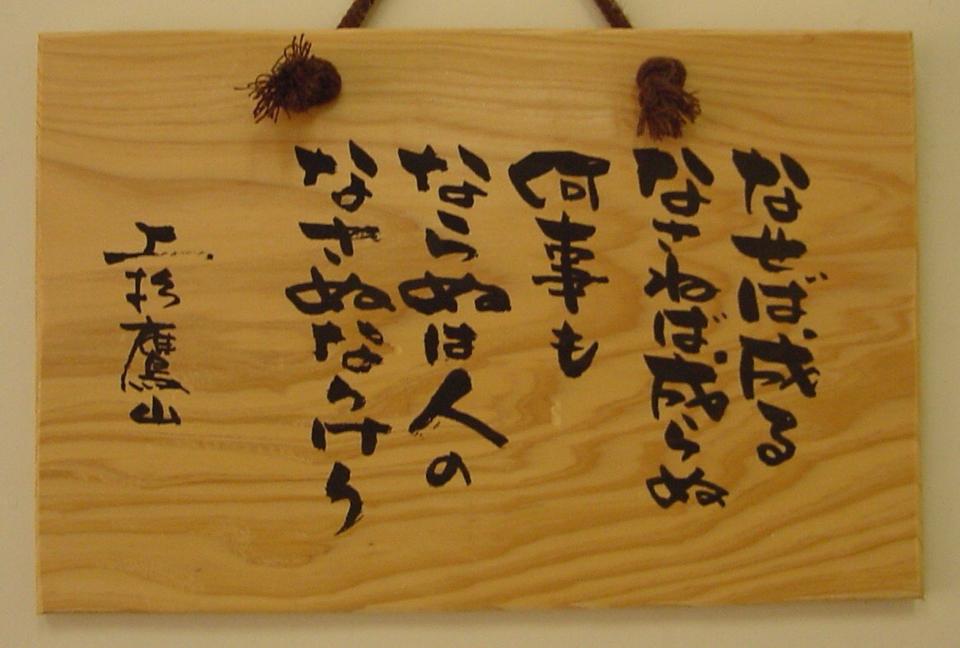 なせば、成る
なさねば、成らぬ
何事も
ならぬは人の
なさぬならけり
上杉鷹山